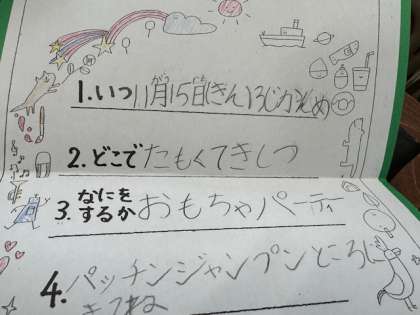 1.いつ11月15日(きん)3じかんめ
2.どこでたもくてきしつ
3.なにをするかおもちゃパーティ
4.パッチンジャンプンところに
きてね